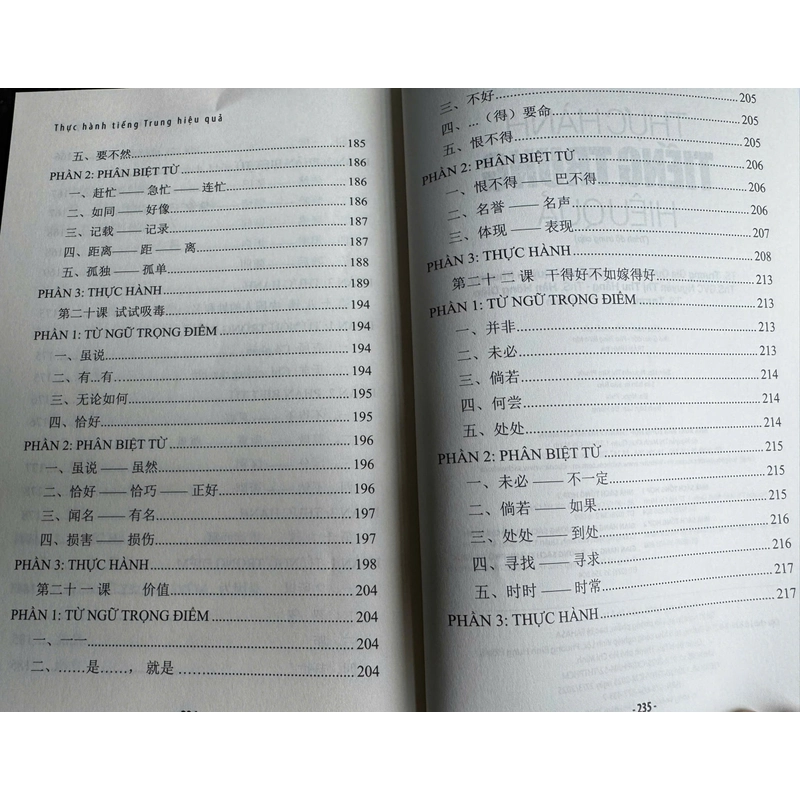 Thực hành tiếng Trung hiệu quả
五、要不然 185
PHẦN 2: PHÂN BIỆT TỪ 186
一、赶忙 —— 急忙 —— 连忙 186
二、如同 —— 好像 186
三、记载 —— 记录 187
四、距离 —— 距 —— 离 187
五、孤独 —— 孤单 188
PHẦN 3: THỰC HÀNH 189
第二十课 试试吸毒 194
PHẦN 1: TỪ NGỮ TRỌNG ĐIỂM 194
一、虽说 194
二、有...有 194
三、无论如何 195
四、恰好 195
PHẦN 2: PHÂN BIỆT TỪ 196
一、虽说 —— 虽然 196
二、恰好 —— 恰巧 —— 正好 196
三、闻名 —— 有名 197
四、损害 —— 损伤 197
PHẦN 3: THỰC HÀNH 198
第二十一课 价值 204
PHẦN 1: TỪ NGỮ TRỌNG ĐIỂM 204
一、一一 204
二、……是……，就是…… 204
三、不好 205
四、...（得）要命 205
五、恨不得 206
PHẦN 2: PHÂN BIỆT TỪ 206
一、恨不得 —— 巴不得 206
二、名誉 —— 名声 206
三、体现 —— 表现 207
PHẦN 3: THỰC HÀNH 208
第二十二课 干得好不如嫁得好 213
PHẦN 1: TỪ NGỮ TRỌNG ĐIỂM 213
一、并非 213
二、未必 213
三、倘若 214
四、何尝 214
五、处处 214
PHẦN 2: PHÂN BIỆT TỪ 215
一、未必 —— 不一定 215
二、倘若 —— 如果 215
三、处处 —— 到处 216
四、寻找 —— 寻求 216
五、时时 —— 时常 217
PHẦN 3: THỰC HÀNH 217
- 235 -